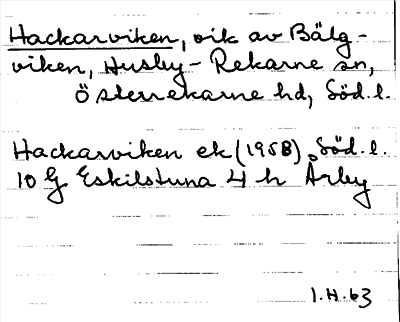 Hackarviken, vik av Bälg-
viken, Husby-Rekarne sn,
Österrekarne hd, Söd.l.
Hackarviken ek (1958), Söd.l.
10 G Eskilstuna 4 h Årby
1.H.63